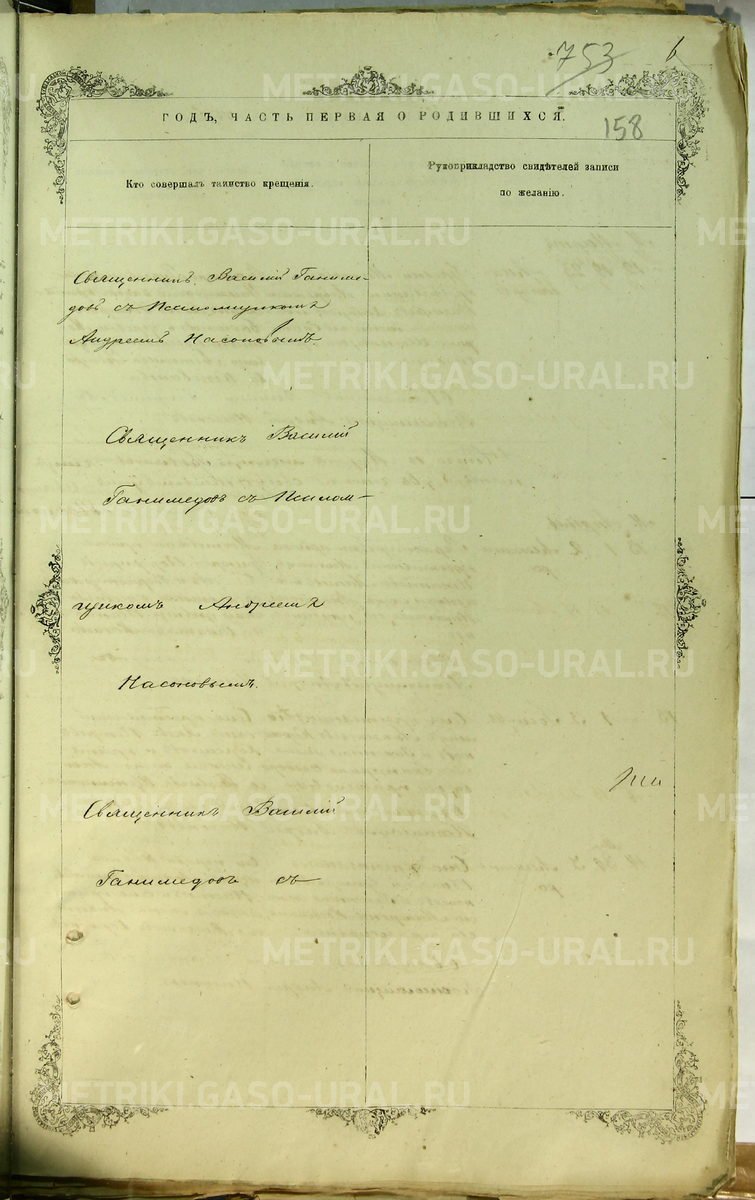 753
6
ГОДЪ, ЧАСТЬ ПЕРВАЯ О РОДИВШИХСЯ.
158
Кто совершалъ таинство крещенія.
Рукоприкладство свидѣтелей записи
по желанію.
Священникъ Василій Ганиме-
довъ съ Псаломщикомъ
Андреемъ Насоновымъ.
Священникъ Василій
Ганимедовъ съ Псалом-
щикомъ Андреемъ
Насоновымъ.
Священникъ Василій
Ганимедовъ съ
METRIKI.GASO-URAL.RU